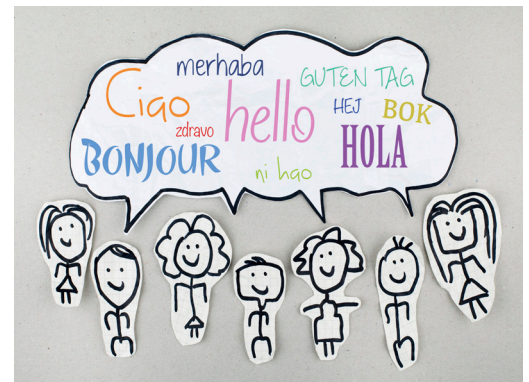 merhaba
GUTEN TAG
Ciao
hello
HEJ
BOK
zdravo
BONJOUR
HOLA
ni hao